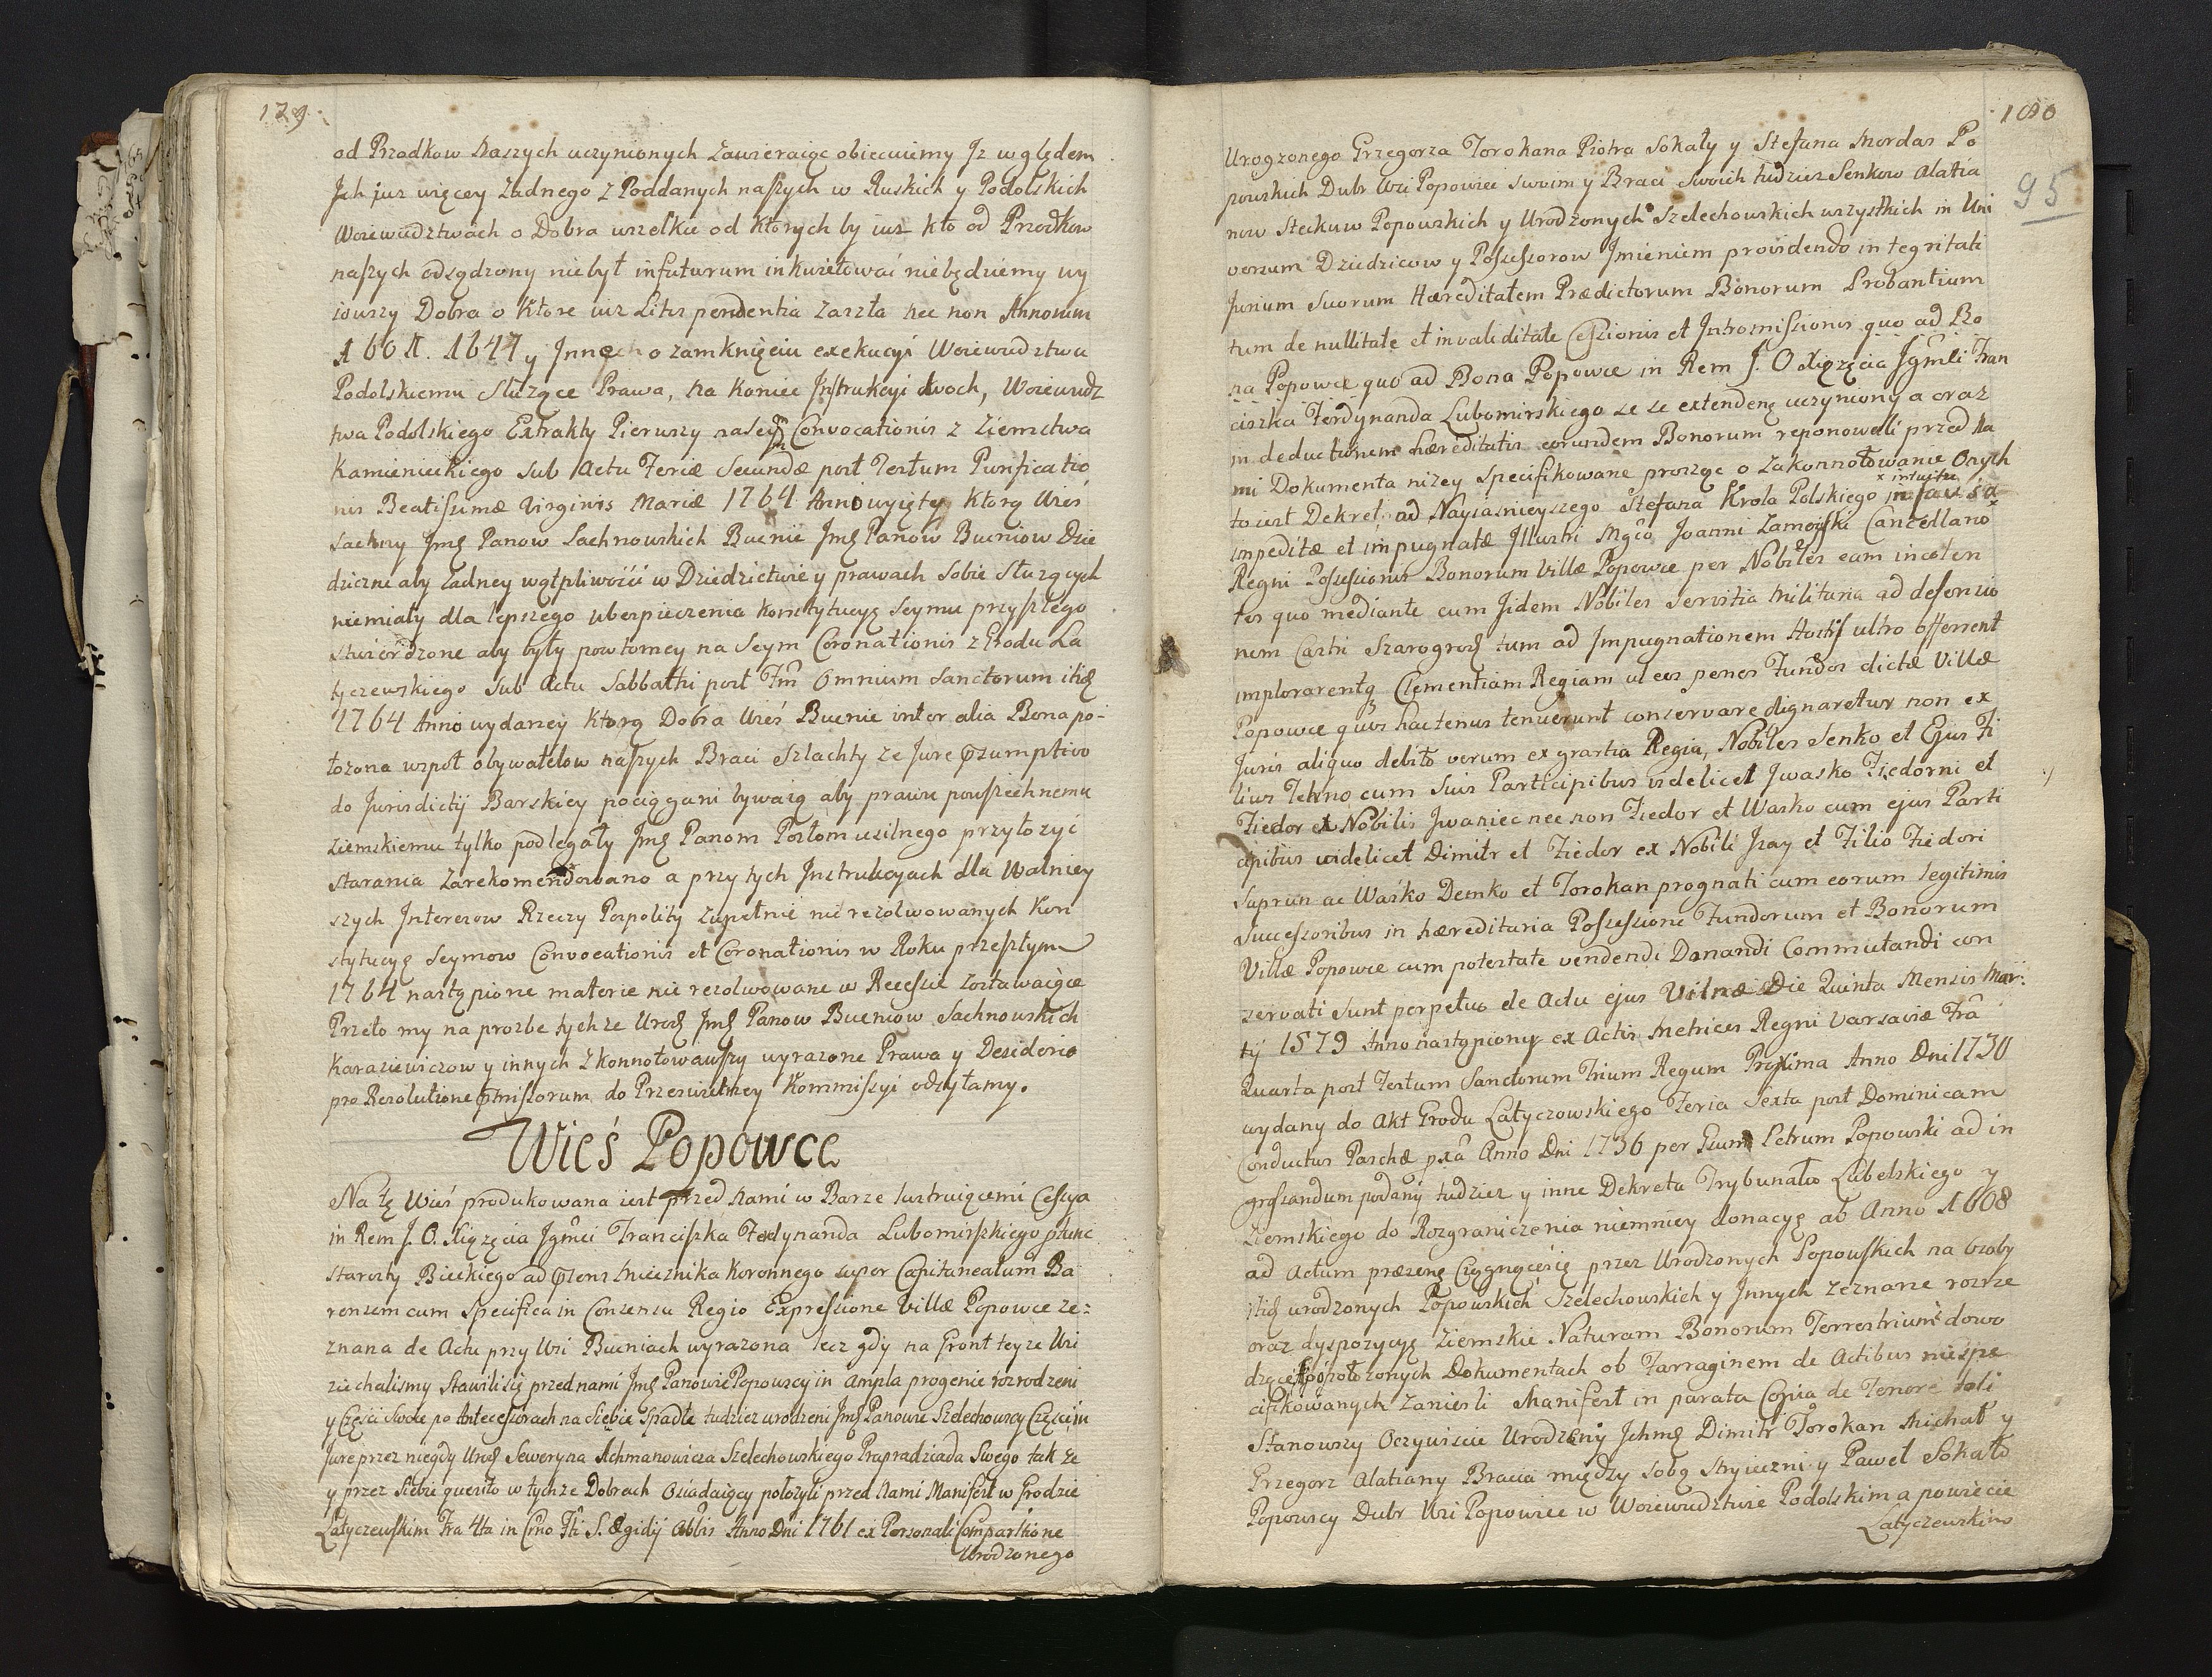 129.
od Przodkow Naszych uczynionych zawieraiąc obiecuiemy Jz względem
Jch juz więcey żadnego z Poddanych naszych w Ruskich y Podolskich
Woiewudztwach o Dobra wszelkie od Których by iuz kto od Przodkow
naszych odsądzony niebył infuturum inkwietować niebędziemy wy
iowszy Dobra o Ktore iuz Litis pendentia zaszła nec non Annorum
1601. 1647 y Jnne o zamknięciu exekucyi Woiewudztwu
Podolskiemu służące Prawa, na koniec Jnstrukcyi dwoch, Woiewudz
twa Podolskiego Extrakty Pierwszy naseym Convocationis z Ziemstwa
Kamienieckiego sub Actu Feriæ Secundæ post Festum Purificatio
nis Beatissimæ Virginis Mariæ 1764 Anno wyięty Ktorą Wieś
Sachny Jmę Panow Sachnowskich Bucnie Jmę Panow Bucniow Dzie
dziczne aby żadney wątpliwości w Dziedzictwie y prawach sobie służących
niemiały dla lepszego ubespieczenia konstytucyą Seymu przyszłego
stwierdzone aby były powtorney na Seym Coronationis z Grodu La
tyczewskiego sub Actu Sabbathi post Fm Omnium Sanctorum
1764 Anno wydaney Ktorą Dobra Wieś Bucnie inter alia Bona po-
łozona wzpoł obywatelow naszych Braci Szlachty ze Jure præsumptivo
do Jurisdictij Barskiey pociągani bywaią aby prawu powszechnemu
ziemskiemu tylko podlegały Jmę Panom Posłom usilnego przyłozyć
starania zarekomendowano a przy tych Jnstrukcyach dla Walniey
szych Jnteressow Rzeczy Pospolity zupełnie nie rezolwowanych Kon
stytucyą Seymow Convocationis et Coronationis w Roku przeszłym
1764 nastąpione materie nie rezolwowane w Recessie zostawaiące
Przeto my na prozbe tychze Urodz Jmę Panow Bucniow Sachnowskich
Karasiewiczow y innych Zkonnotowawszy wyrazone Prawa y Desideria
pro Resolutione præmissorum do Prześwietney Kommissyi odsyłamy.
Wieś Popowce
Na tę Wieś produkowana iest przed nami w Barze lustruiącemi Cessya
in Rem J. O. Xiążęcia Jgmci Franciszka Ferdynanda Lubomirskiego
starosty Bieckiego ad præsens Miecznika Koronnego super Capitaneatum Ba
rensem cum specifica in Consensu Regio Expressione Villæ Popowce ze=
znana de Actu przy Wsi Bucniach wyrazona lecz gdy na Gront teyze Wsi
ziechalismy Stawili się przed nami Jmę Panowie Popowscy in ampla progenie rozrodzeni
y Części swoie po Antecessorach na siebie Spadłe tudziez urodzeni Jmę Panowie Szelechowscy Części in
Jure przez niegdy Urodz Seweryna Achmanowicza Szelechowskiego Prapradziada Swego tak ze
y przez Siebie quesito w tychze Dobrach Osiadaiący położyli przed Nami Manifest w Grodzie
Latyczewskim Fra 4ta in Crno Fti S. Ægidij Abbis Anno Dni 1761 ex Personali Comparitione
Urodzonego
180
95
Urogzonego Grzegorza Torokana Piotra Sokały y Stefana Mordas Po
powskich Dubr Wsi Popowiec swoim y Braci swoich tudziez Senkow Alatia
now Steckuw Popowskich y Urodzonych Szelechowskich wszystkich in Uni
versum Dziedzicow y Possessorow Jmieniem providendo integritati
Jurium Suorum Hæreditatem Prædictorum Bonorum Probantium
tum de nullitate et invaliditate Cessionis et Intromissionis quo ad Bo
na Popowce quo ad Bona Popowce in Rem J. O. Xiążęcia Jgmci Fran
ciszka Ferdynanda Lubomirskiego se se extendenę uczyniony a oraz
in deductionem hæreditatis eorumdem Bonorum reponowali przed Na
mi Dokumenta niżey specifikowane prosząc o Zakonnotowanie Onych
x intuitu
to iest Dekret ad Nayiasnieyszego Stefana Krola Polskiego in causa
impeditæ et impugnatæ Jllustri Mgco Joanni Zamoyski Cancellario
Regni Possessionis Bonorum Villæ Popowce per Nobiles eam incolen
tes quo mediante cum Jidem Nobiles servitia Militaria ad defensio
nem Castri Szarogrodz tum ad Impugnationem Hostis ultro offerrent
implorarentq Clementiam Regiam ut eos penes Fundos dictæ Villæ
Popowce quos hactenus tenuerunt conservare dignaretur non ex
Juris aliquo debito verum ex grartia Regia, Nobiles Senko et Ejus Fi
lius Tehno cum Suis Participibus videlicet Jwasko Fiedorni et
Fiedor et Nobilis Jwaniec nec non Fiedor et Wasko cum ejus Parti
cipibus videlicet Dimitr et Fiedor ex Nobili Jzay et Filio Fiedori
Suprun ac Waśko Demko et Torokan prognati cum eorum legitimis
Successoribus in hæreditaria Possessione Fundorum et Bonorum
Villæ Popowce cum potestate vendendi Donandi Commutandi con
zervati sunt perpetuo de Actu ejus Vilnæ Die Quinta Mensis Mar:
tij 1579 Anno nastąpiony ex Actis Metrices Regni Varsaviæ Fra
Quarta post Festum Sanctorum Trium Regum Proxima Anno Dni 1730
wydany do Akt Grodu Latyczowskiego Feria Sexta post Dominicam
Conductus Paschæ pxa Anno Dni 1736 per Gsum Petrum Popowski ad in
grossandum podany tudziez y inne Dekreta Trybunału Lubelskiego y
Ziemskiego do Rozgraniczenia niemniey donacyę ab Anno 1608
ad Actum præsenę Ciągnącesię przez Urodzonych Popowskich na Osoby
urodzonych Popowskich Szelechowskich y Jnnych zeznane rozne
oraz dyspozycyę ziemskie Naturam Bonorum Terrestrium dowo
dzące położonych Dokumentach ob Farraginem de Actibus niespe
cifikowanych zaniesli Manifest in parata Copia de Tenore tali
Stanowszy Oczywiscie Urodzeny Jchmę Dimitr Torokan Michał y
Grzegorz Alatiany Bracia między sobą stryieczni y Paweł Sokało
Popowscy Dubr Wsi Popowiec w Woiewudztwie Podolskim a powiecie
Latyczewskim